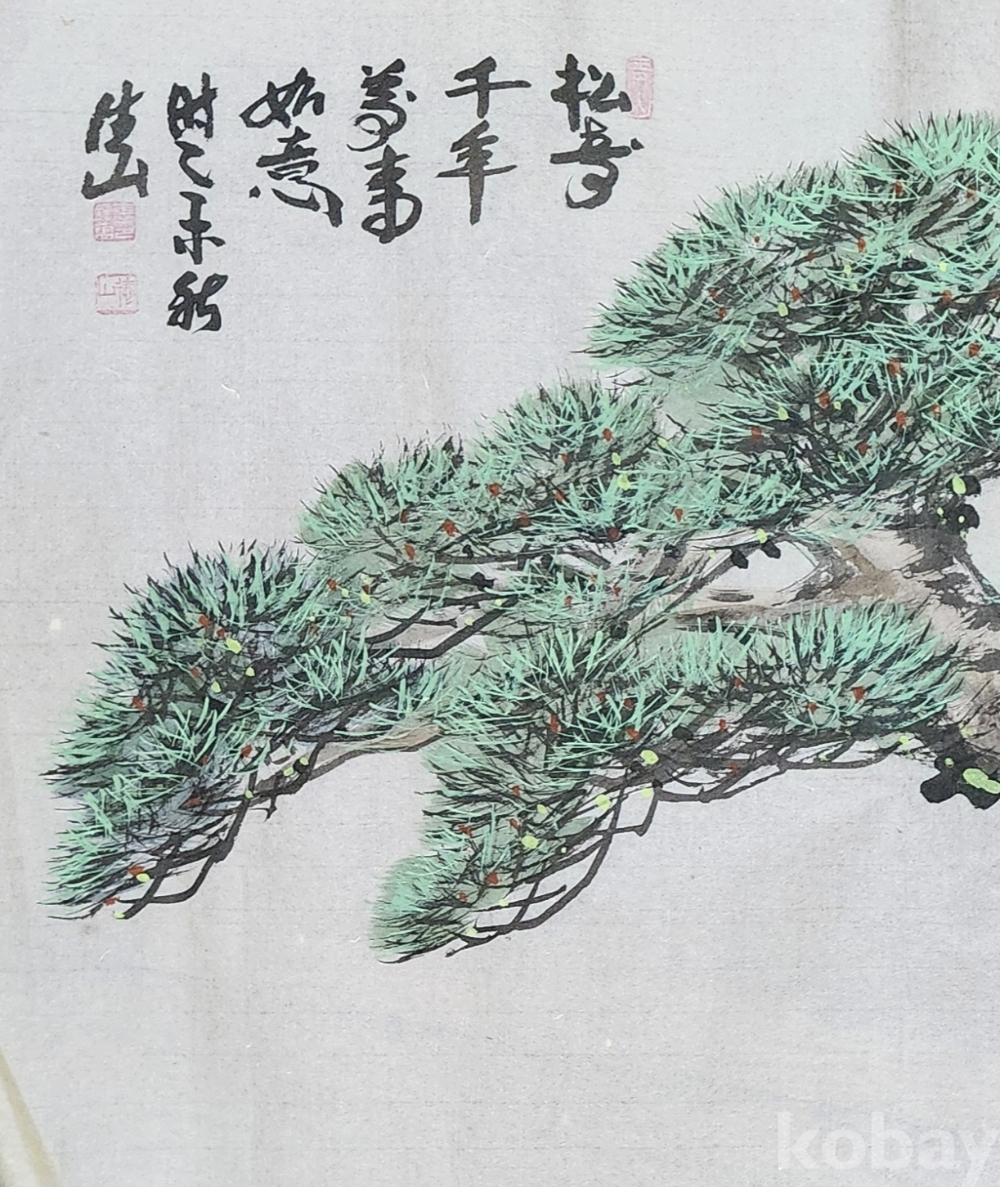 松壽
千年
萬事
如意
時乙未秋
山
kobay